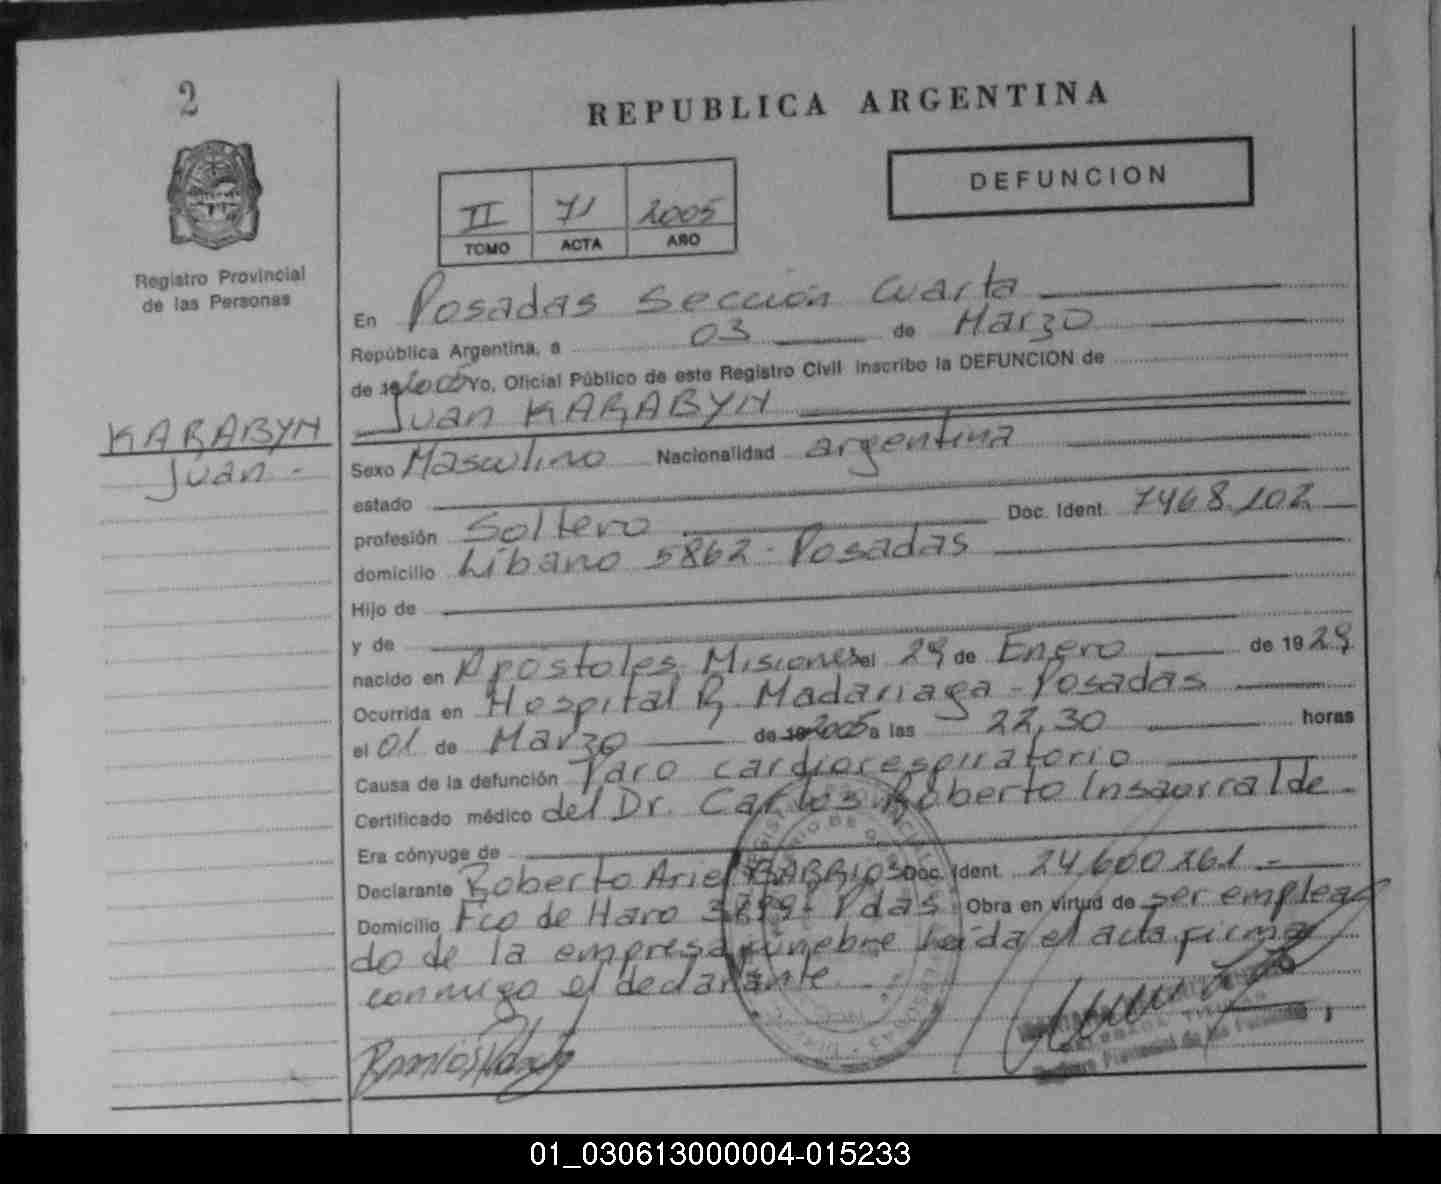 2
REPUBLICA ARGENTINA
DEFUNCION
II 71 2005
TOMO ACTA AÑO
Registro Provincial
de las Personas
En Posadas Sección Cuarta
República Argentina, a 03 de Marzo
de 19 2005 Yo, Oficial Público de este Registro Civil inscribo la DEFUNCION de
Juan KARABYN
KARABYN
Juan -
Sexo Masculino Nacionalidad argentina
estado
profesión Soltero Doc. Ident. 7468.102
domicilio Líbano 5862 - Posadas
Hijo de
y de
nacido en Apostoles Misiones el 29 de Enero de 1929
Ocurrida en Hospital R. Madariaga - Posadas
el 01 de Marzo de 19 2005 a las 22,30 horas
Causa de la defunción Paro cardiorespiratorio
Certificado médico del Dr. Carlos Roberto Insaurralde -
Era cónyuge de
Declarante Roberto Ariel BARRIOS Doc. Ident. 24.600.261 -
Domicilio Fco de Haro - Pdas Obra en virtud de ser emplea
do de la empresa funebre leída el acta firma
conmigo el declarante
01_030613000004-015233